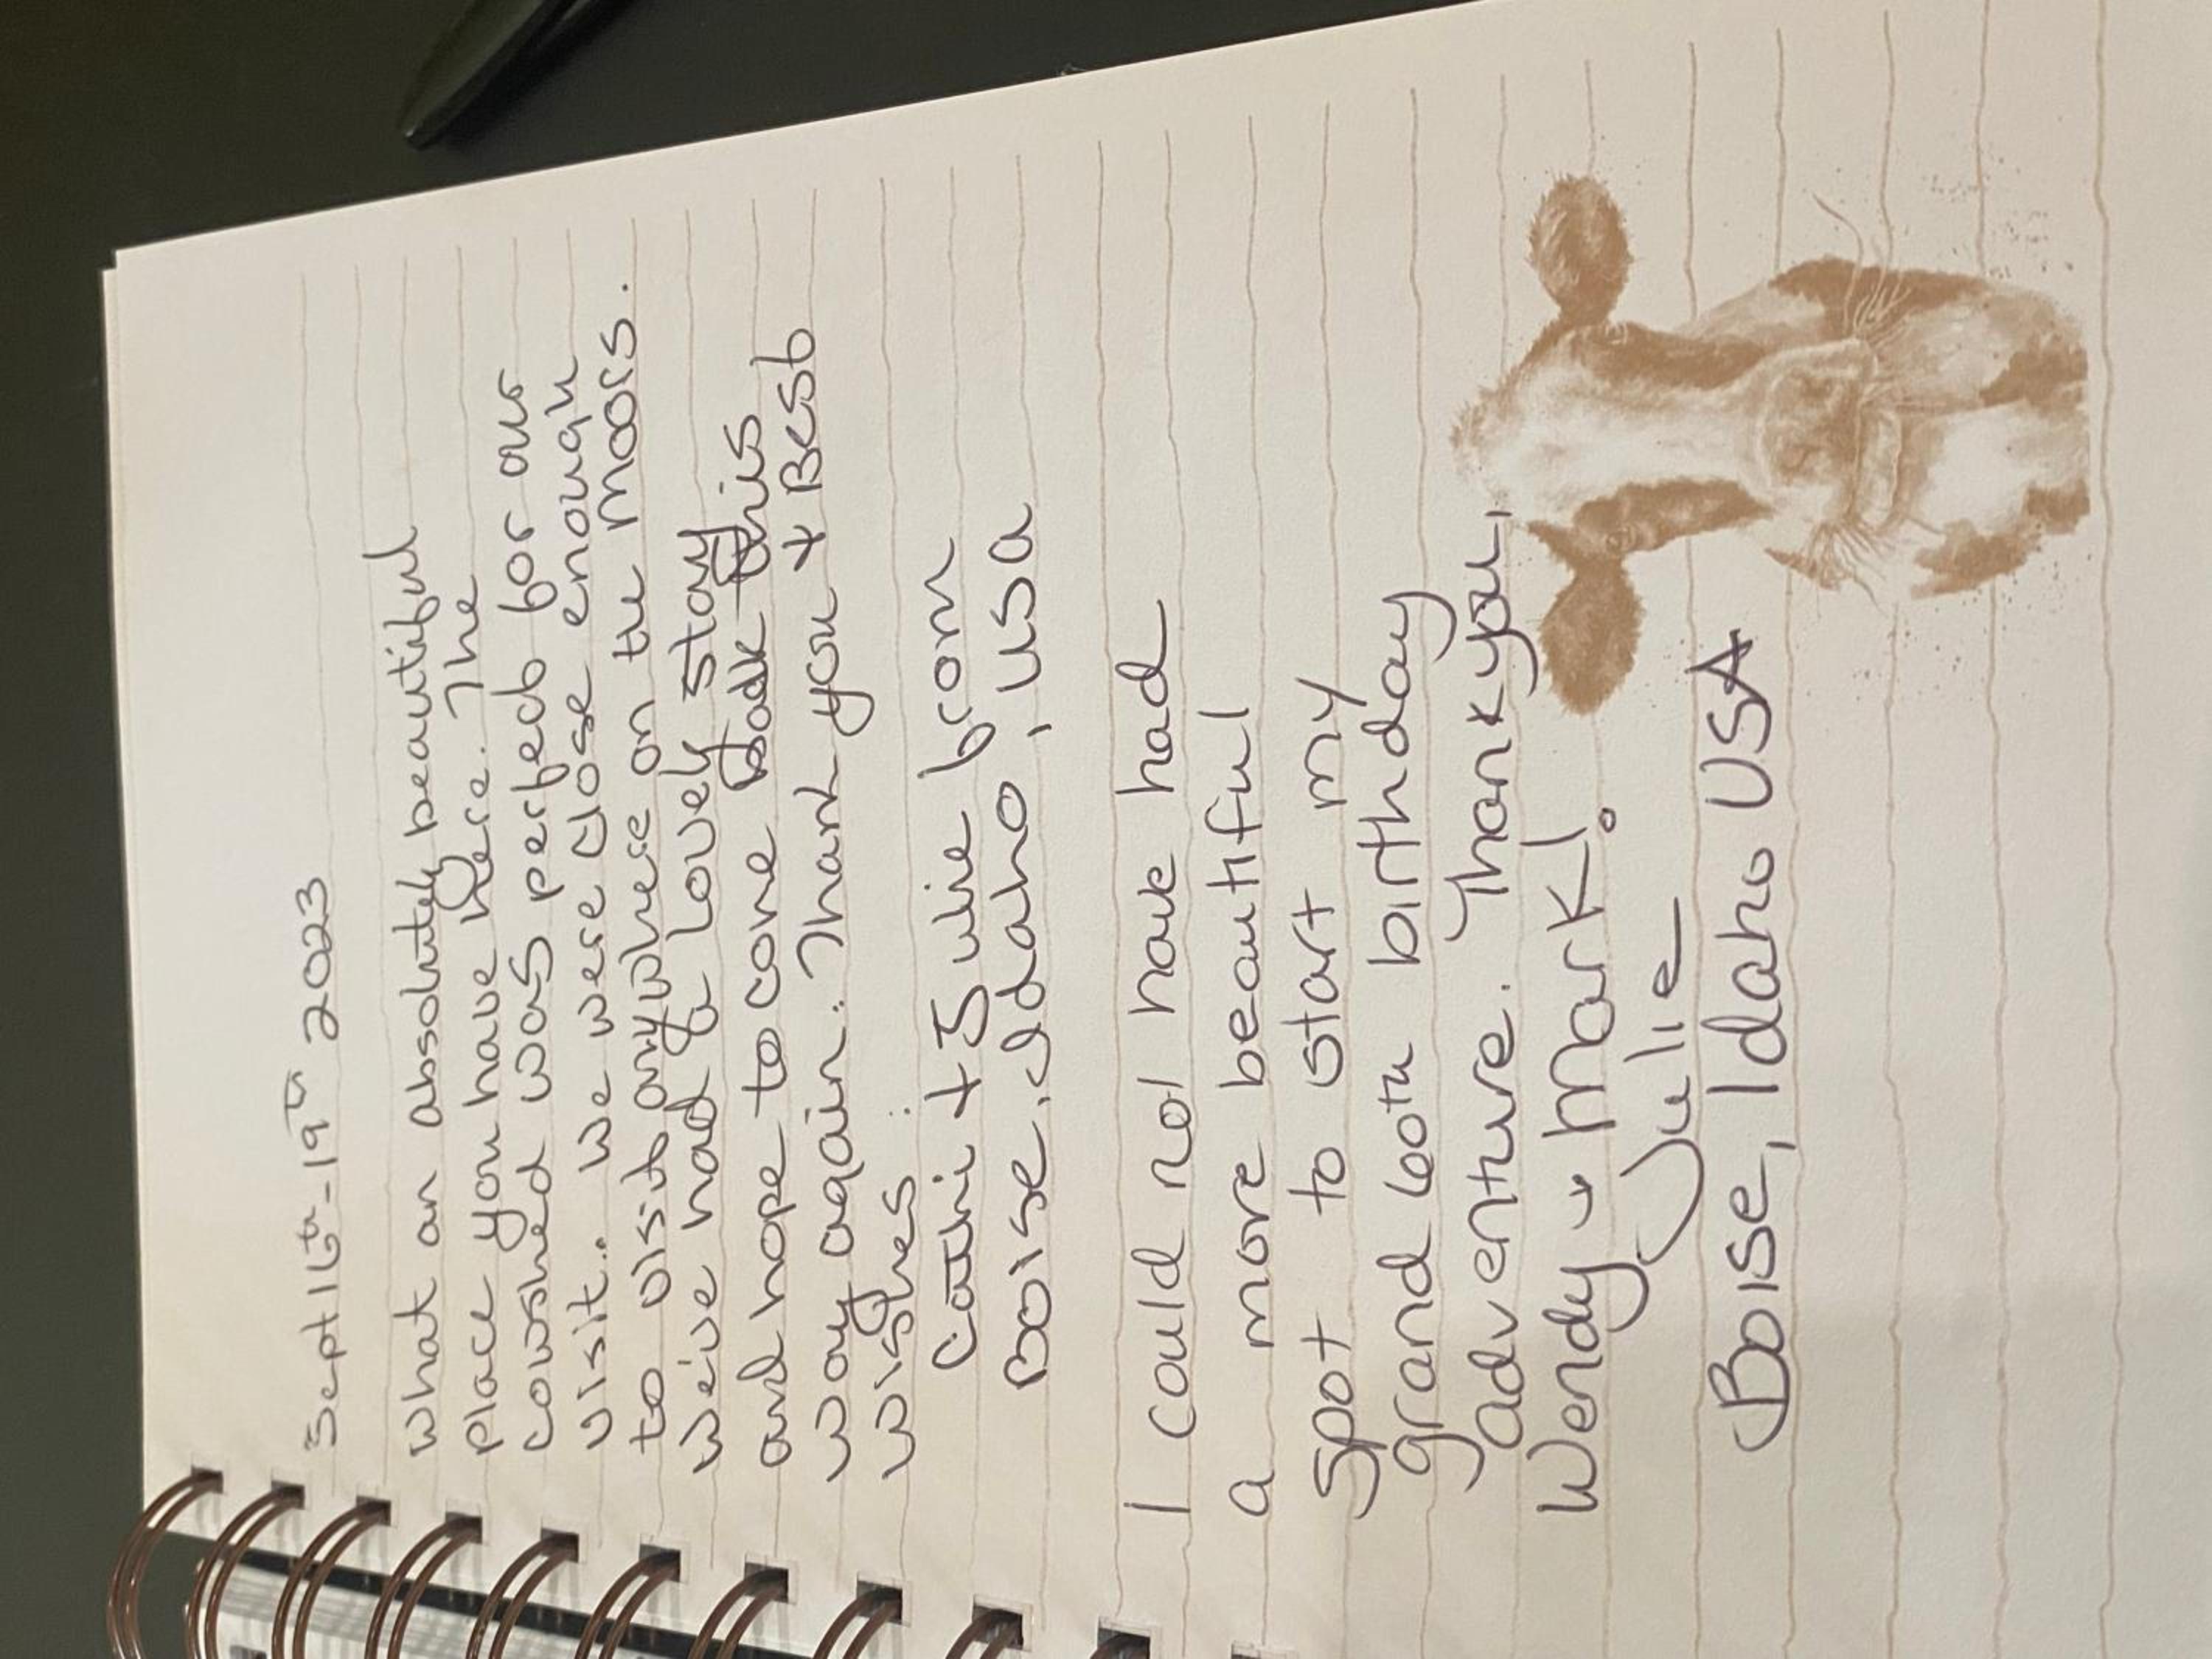 Sept 16th - 19th 2023
What an absolutely beautiful
place you have here. The
cowshed was perfect for our
visit.. We were close enough
to visit anywhere on the moors.
We've had a lovely stay
and hope to come back this
way again. Thank you + Best
wishes.
Cathi + Julie from
Boise, Idaho, USA
I could not have had
a more beautiful
spot to start my
grand 60th birthday
adventure. Thank you,
Wendy & Mark!
Julie
Boise, Idaho USA